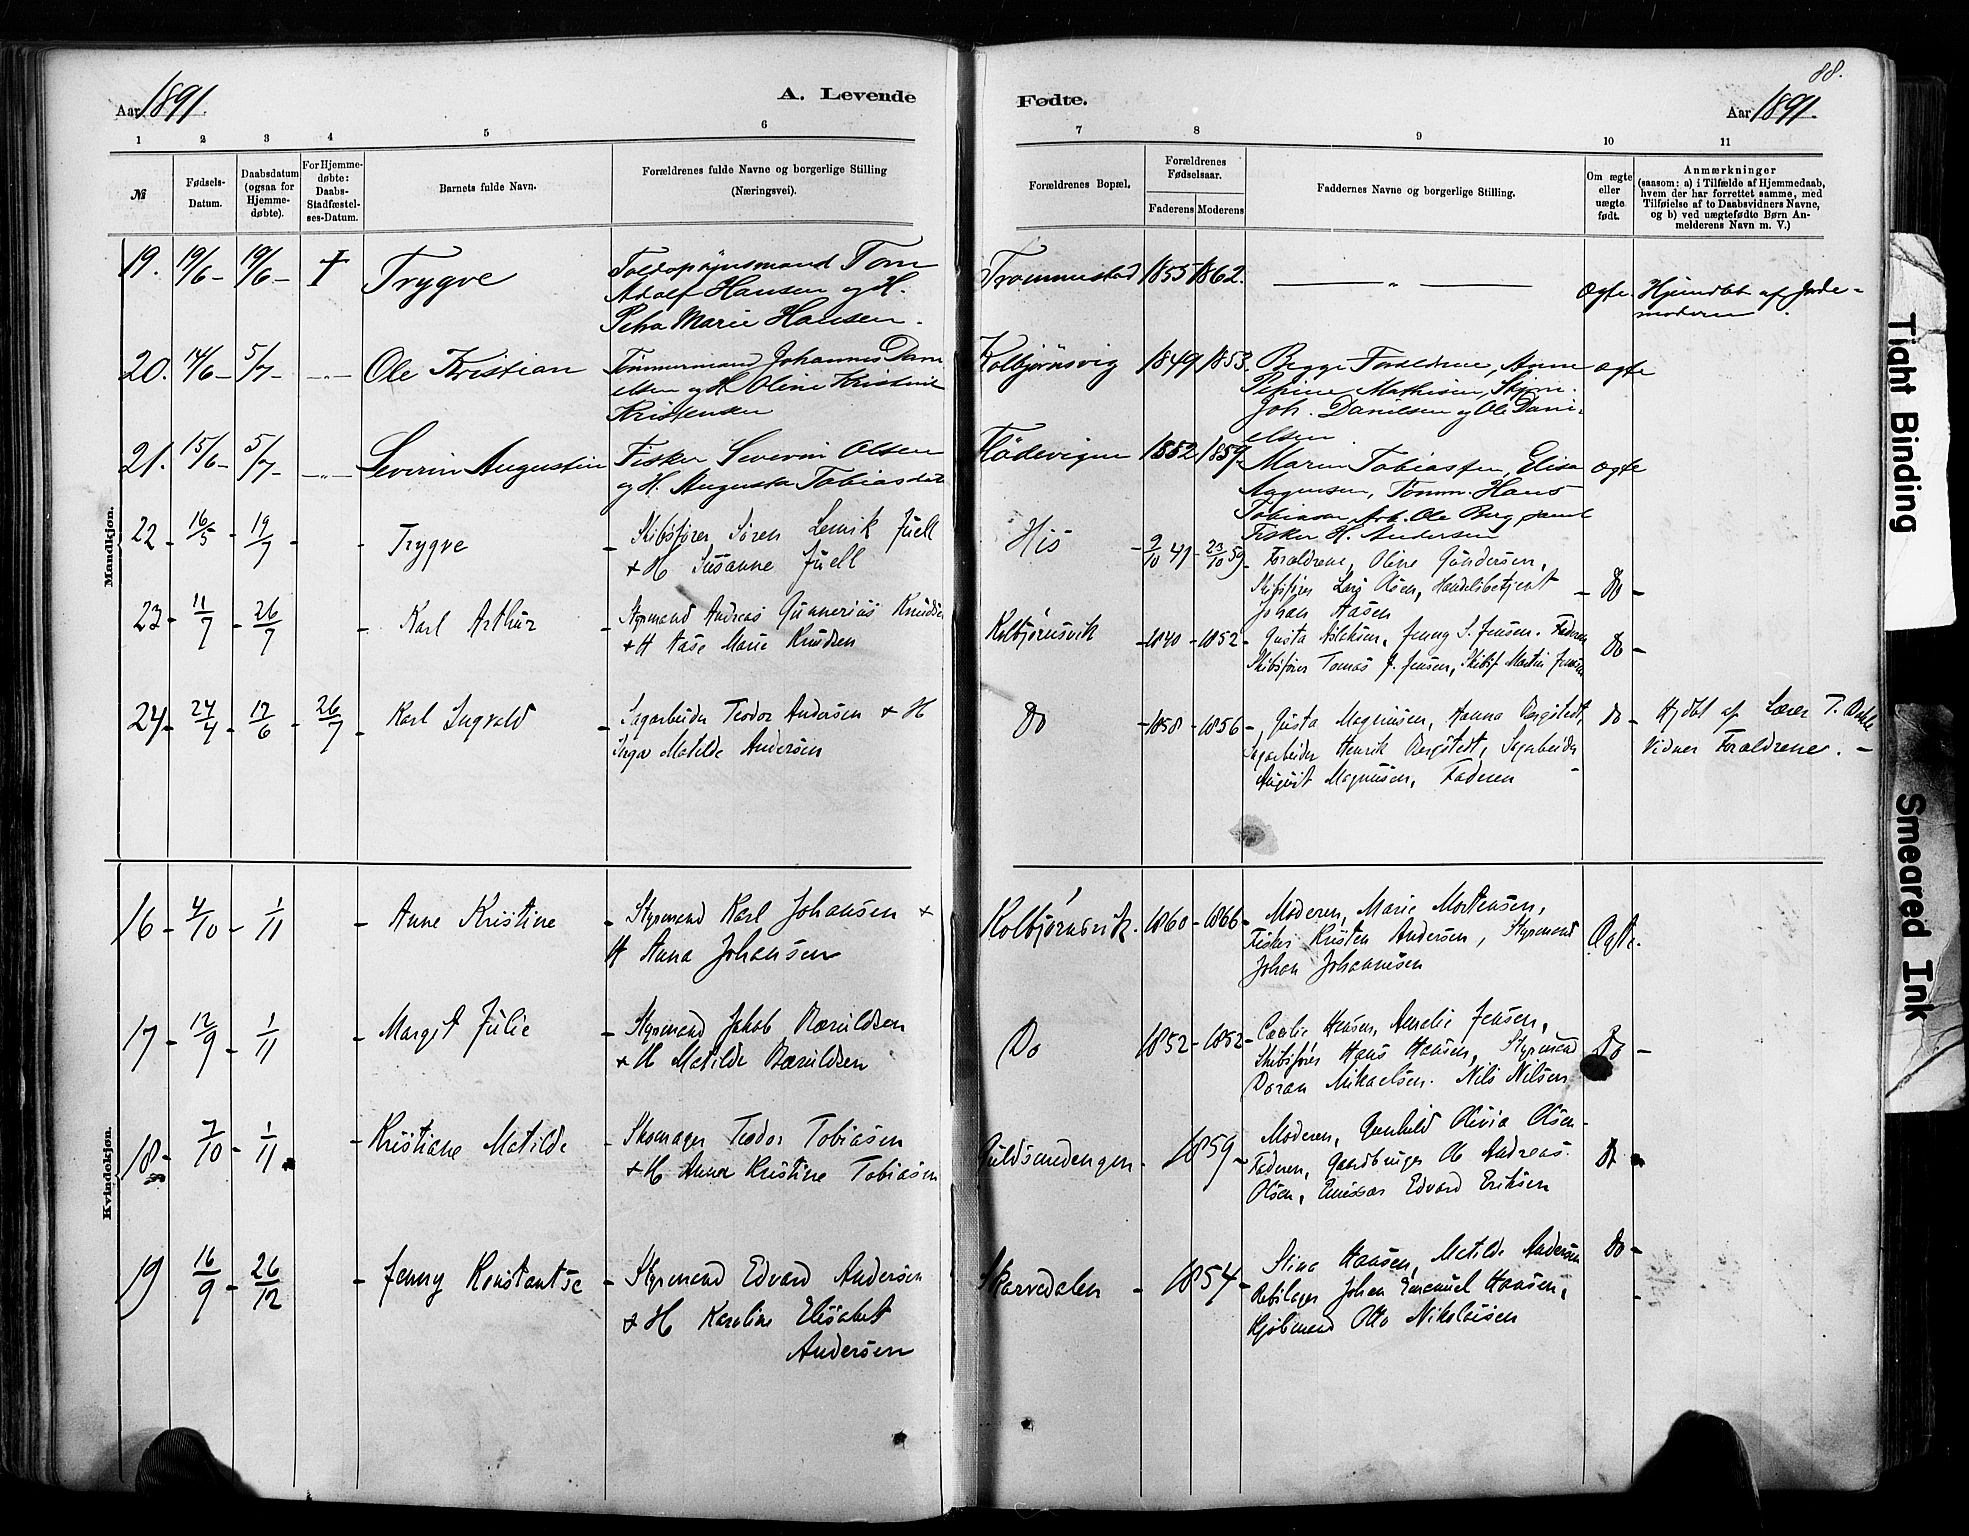 88.
Aar 1891.
A. Levende
Fødte.
Aar 1891.
1 2 3 4 5 6
7 8 9 10 11
№
Fødsels-Datum.
Daabsdatum (ogsaa for Hjemmedøbte).
For Hjemmedøbte: Daabs-Stadfæstelses-Datum.
Barnets fulde Navn.
Forældrenes fulde Navne og borgerlige Stilling
(Næringsvei).
Forældrenes Bopæl.
Forældrenes Fødselsaar.
Faderens Moderens
Faddernes Navne og borgerlige Stilling.
Om ægte eller uægte født.
Anmærkninger
(saasom: a) i Tilfælde af Hjemmedaab,
hvem der har forrettet samme, med
Tilføielse af to Daabsvidners Navne,
og b) ved uægtefødte Børn An-
melderens Navn m. V.)
Mandkjøn.
19. 19/6 - 19/6 - † Trygve
Toldopsynsmand Tom
Adolf Hansen og H.
Petra Marie Hansen.
Trommestad 1855 1862. — „ — Ægte. Hjemdbt af Jorde-
moderen.
20. 14/6 - 5/7 - Ole Kristian
Tømmermand Johannes Dani
elsen og H. Oline Kristine
Kristensen
Kolbjørnsvig 1849 1853. Begge Forældrene, Anne
Petrine Mathisen, Skjem.
Joh. Danielsen og Ole Dani-
elsen
ægte
21. 15/6 - 5/7 - Severin Augustin
Fisker Severin Olsen
og H. Augusta Tobiasdat
Flødevigen 1852 1859. Maren Tobiassen, Elise
Aagensen, Tømm. Hans
Tobiassen, Arb. Ole Berg samt
Fisker H. Andersen
ægte
22 - 16/5 - 19/7 - - Trygve
- Skibsfører Søren Lemik Juell
+ H Susanne Juell
His - 9/10 41 - 23/10 59 - Forældrene, Oline Gundersen,
Skibsfører Lars Olsen, Handelsbetjent
Johan Aasen
- Do -
23 - 11/7 - 26/7 - Karl Arthur
- Styrmand Andreas Gunnerius Knudsen
+ H Aase Marie Knudsen
Kolbjørnsvik - 1840 - 1852 - Gusta Aslaksen, Jenny S. Jensen. Faderen
Skibsfører Tomas J. Jensen, Skibsf Martin Jensen
Do -
24 - 24/4 - 12/6 - 26/7 - Karl Ingvald
- Sagarbeider Teodor Andersen + H
Inga Matilde Andersen
Do - 1858 - 1856 - Gusta Magnusen, Hanna Bergstedt,
Sagarbeider Henrik Bergstedt, Sagarbeider
August Magnusen, Faderen -
Do - Hjdbt af Lærer T. Dahle
Vidner Forældrene. -
Kvindekjøn.
16 - 4/10 - 1/11 - Anne Kristine
- Styrmand Karl Johansen +
H Anna Johansen
Kolbjørnsvik. 1860 - 1866 - Moderen, Marie Mortensen,
Fisker Kristen Andersen, Styrmand
Johan Johannesen
Ægte.
17 - 12/9 - 1/11 - Margit Julie
- Styrmand Jakob Baruldsen
+ H Matilde Baruldsen
Do 1852 - 1852 - Hansen, Amalie Jensen,
Skibsfører Hans Hansen, Styrmand
Mikaelsen. Nils Nilsen
Do -
18 - 7/10 - 1/11 - Kristiane Matilde
- Skomager Teodor Tobiasen
+ H Anna Kristine Tobiasen
Guldsmedengen. 1859 - Moderen, Gunhild Olivia Olsen -
Faderen, Gaardbruger Ole Andreas
Olsen, Emissær Edvard Eriksen
Do
19 16/9 - 26/12 - Jenny Konstantse
- Styrmand Edvard Andersen
+ H Karoline Elisabet
Andersen
Skarvedalen - 1854 - Stina Hansen, Matilde Andersen
Rebslager Johan Emanuel Hansen,
Kjøbmand Otto Nikolaisen
Do -
Tight Binding
Smeared Ink